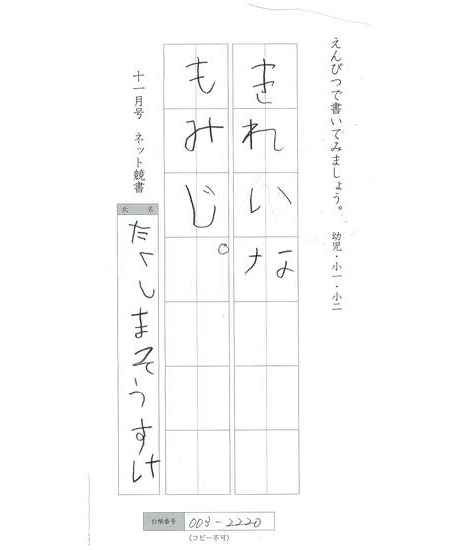 えんぴつで書いてみましょう。 幼児・小一・小二
きれいな
もみじ。
十一月号 ネット競書
氏名
たくしまそうすけ
台帳番号 008-2220
(コピー不可)